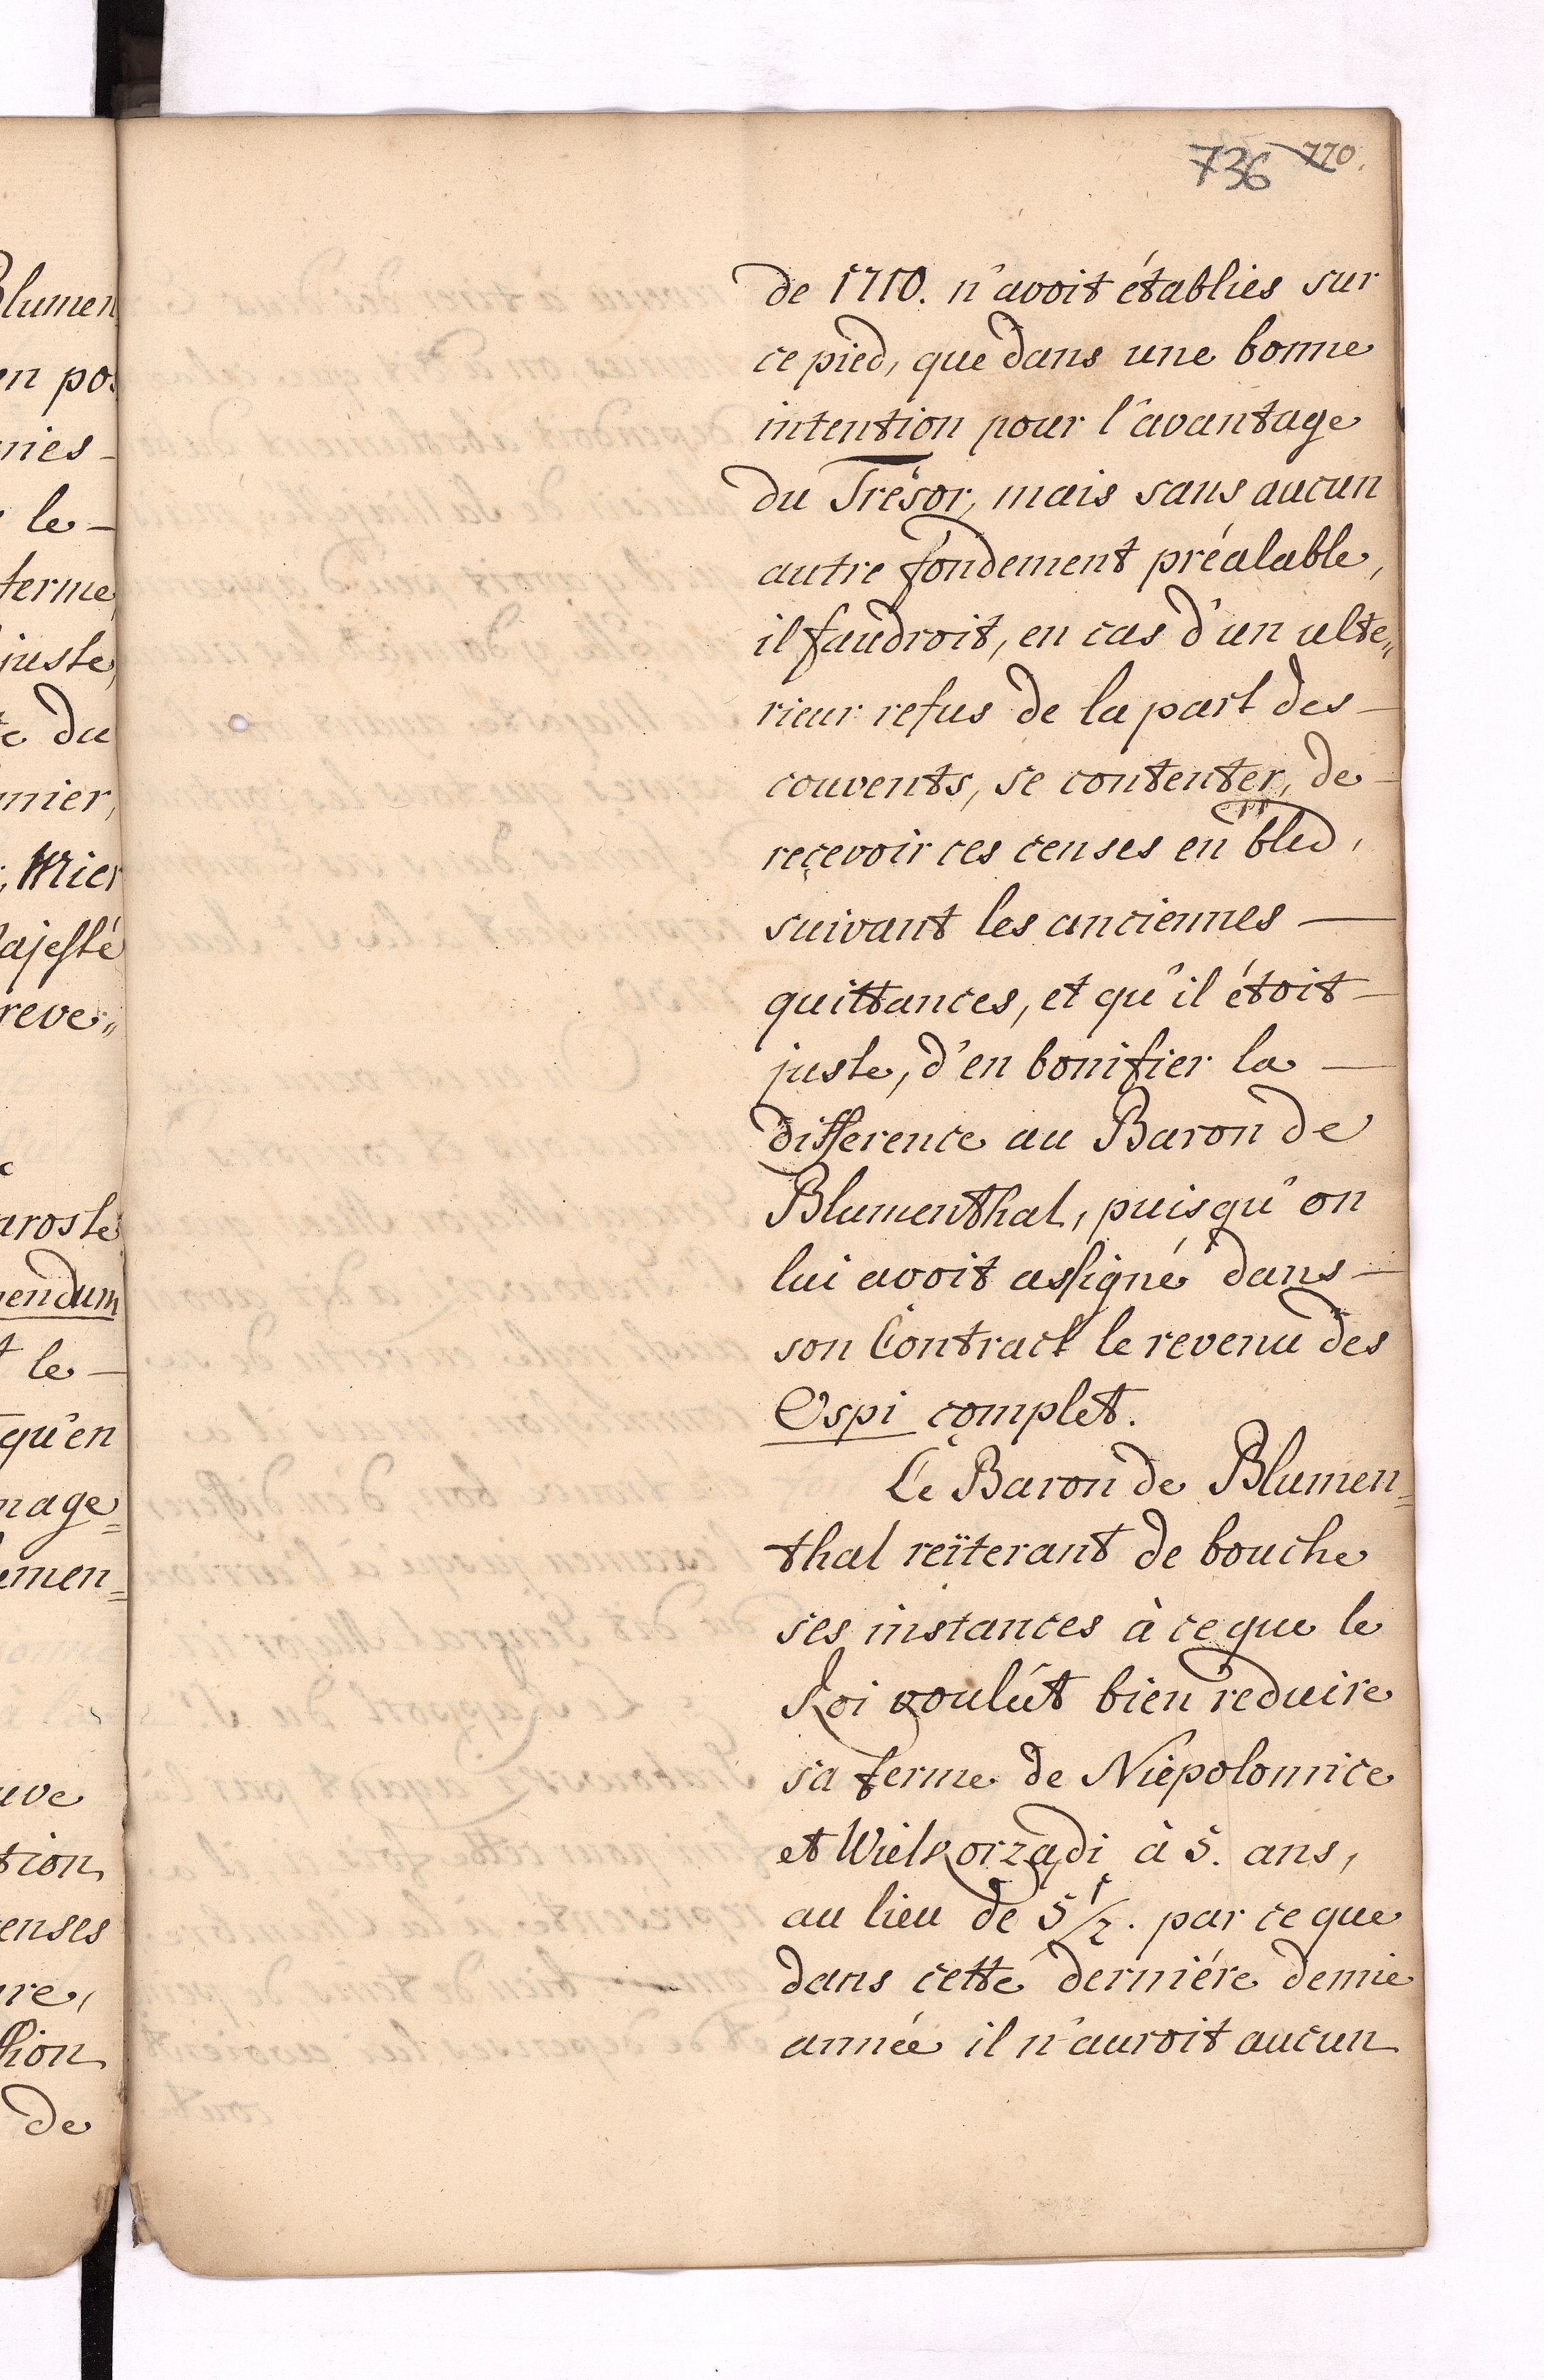 736 770.
de 1710. n'avoit établies sur
ce pied, que dans une bonne
intention pour l'avantage
du Trésor, mais sans aucun
autre fondement préalable,
il faudroit, en cas d'un ulte„
rieur refus de la part des —
couvents, se contenter, de —
reçevoir ces censes en bled,
suivant les anciennes —
quittances, et qu'il étoit —
juste, d'en bonifier la —
difference au Baron de
Blumenthal, puisqu'on
lui avoit assigné dans —
son Contract le revenu des
Ospi complet.
Le Baron de Blumen=
thal reïterant de bouche
ses instances à ce que le
Roi voulût bien reduire
sa ferme de Niepolomice
et Wielkorzadi à 5. ans,
au lieu de 5 1/2. par ce que
dans cette derniére demie
année il n'auroit aucun
lumen
en pos
nies —
le —
ferme,
juste,
du
mier,
Mier
ajesté
reve„
aroste
endum
le —
qu'en
nage=
emen=
uve
tion
enses
re,
de